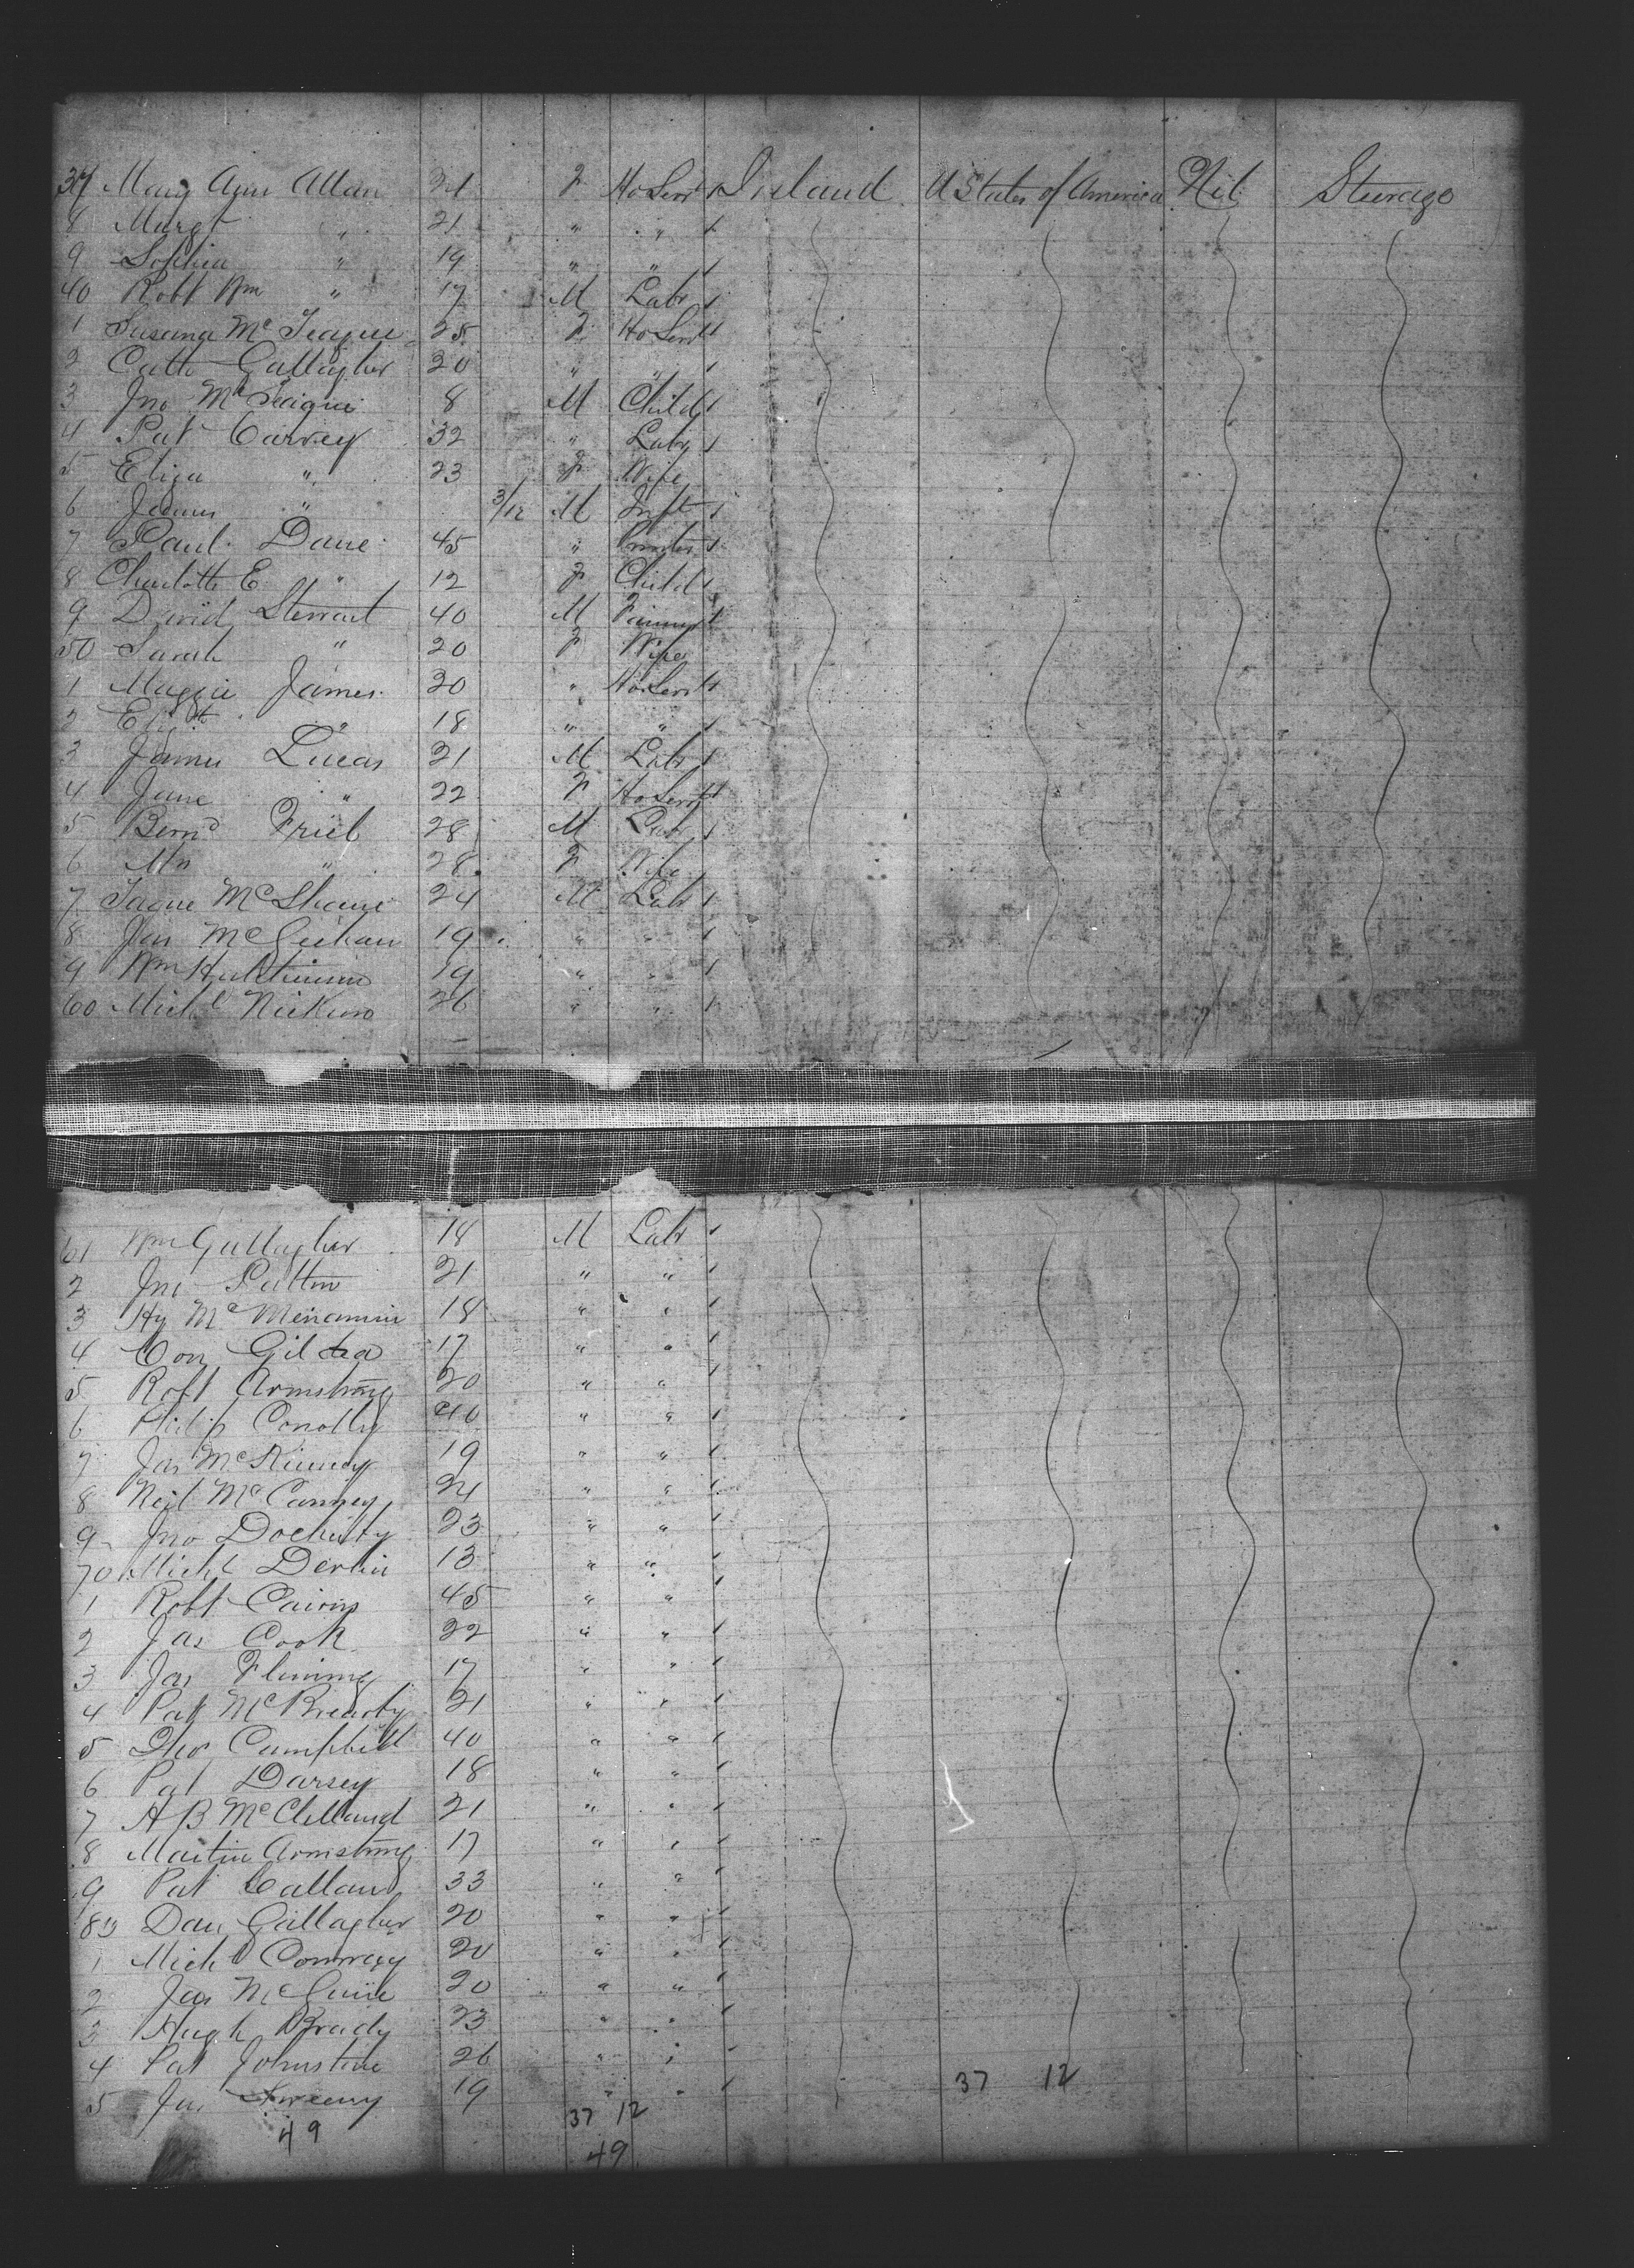 37 Mary Ann Allan 24 F Ho Serv Ireland U States of America Nil Steerage
8 Margt " 21 " "
9 Sophia " 19 " "
40 Robt Wm " 17 M Labr
1 Susanna McTeague 25 F Ho Servt
2 Cath Gallagher 20 " "
3 Jno McTeague 8 M Child
4 Pat Carvey 32 " Labr
5 Eliza " 23 F Wife
6 James " 3/12 M Inft
7 Paul Dane 45 "
8 Charlotte E " 12 F Child
9 David Stewart 40 M Farmer
50 Sarah " 20 F Wife
1 Maggie James 20 " Ho Servt
2 Elizth " 18 " "
3 James Lucas 21 M Labr
4 Jane " 22 F Ho Servt
5 Bernd Friel 28 M Labr
6 Mrs " 28 F Wife
7 McShane 24 M Labr
8 Jas McGeehan 19 " "
9 Wm Hutchinson 19 " "
60 Michl 26 " "
61 Wm Gallagher 18 M Labr
2 Jno Patton 21 " "
3 Hy McMenamin 18 " "
4 Con Gildea 17 " "
5 Robt Armstrong 20 " "
6 Philip Conolly 40 " "
7 Jas McKinney 19 " "
8 Neil McCanney 24 " "
9 Jno Docherty 23 " "
70 Michl Devlin 13 " "
1 Robt Cairns 45 " "
2 Jas Cook 22 " "
3 Jas Fleming 17 " "
4 Pat McBrearty 21 " "
5 Thos Campbell 40 " "
6 Pat Darsey 18 " "
7 A B McClelland 21 " "
8 Martin Armstrong 17 " "
9 Pat Callan 33 " "
80 Dan Gallagher 20 " "
1 Michl Conway 20 " "
2 Jas McGuire 20 " "
3 Hugh Brady 23 " "
4 Pat Johnstone 26 " "
5 Jas Sweeny 19 " " 37 12
49 37 12
49